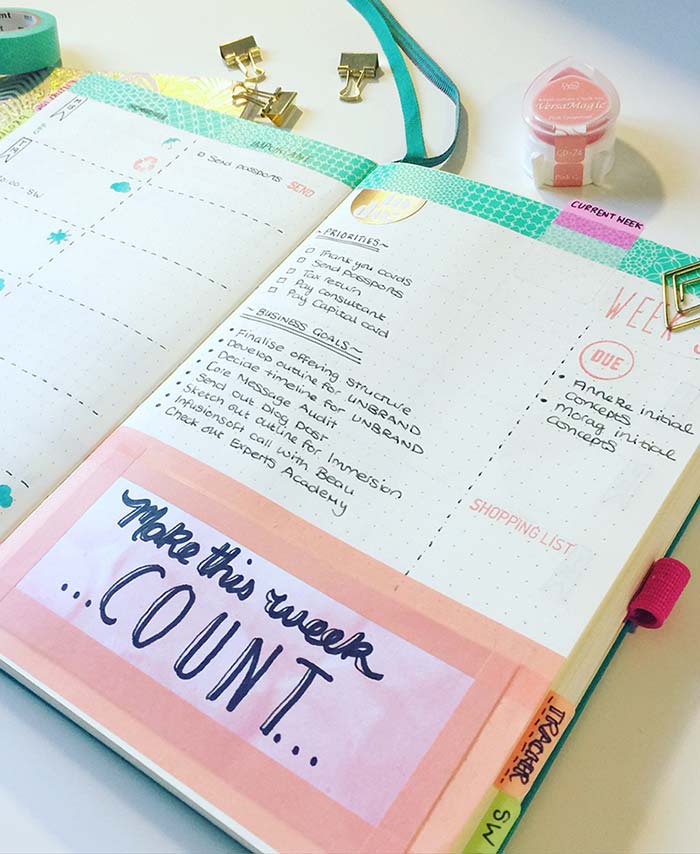 IMPORTANT
Send passports
SEND
OFF
- SW
VersaMagic
GD-74
Pink
CURRENT WEEK
~PRIORITIES~
Thank you cards
Send passports
Tax return
Pay consultant
Pay Capital card
~BUSINESS GOALS~
• Finalise offering structure
• Develop outline for UNBRAND
• Decide timeline for UNBRAND
• Core Message Audit
• Send out blog post
• Sketch out outline for Immersion
• Infusionsoft call with Beau
• Check out Experts Academy
WEEK
DUE
• Anneke initial
concepts
• Morag initial
concepts
SHOPPING LIST
Make this week
...COUNT...
TRACKER
SW